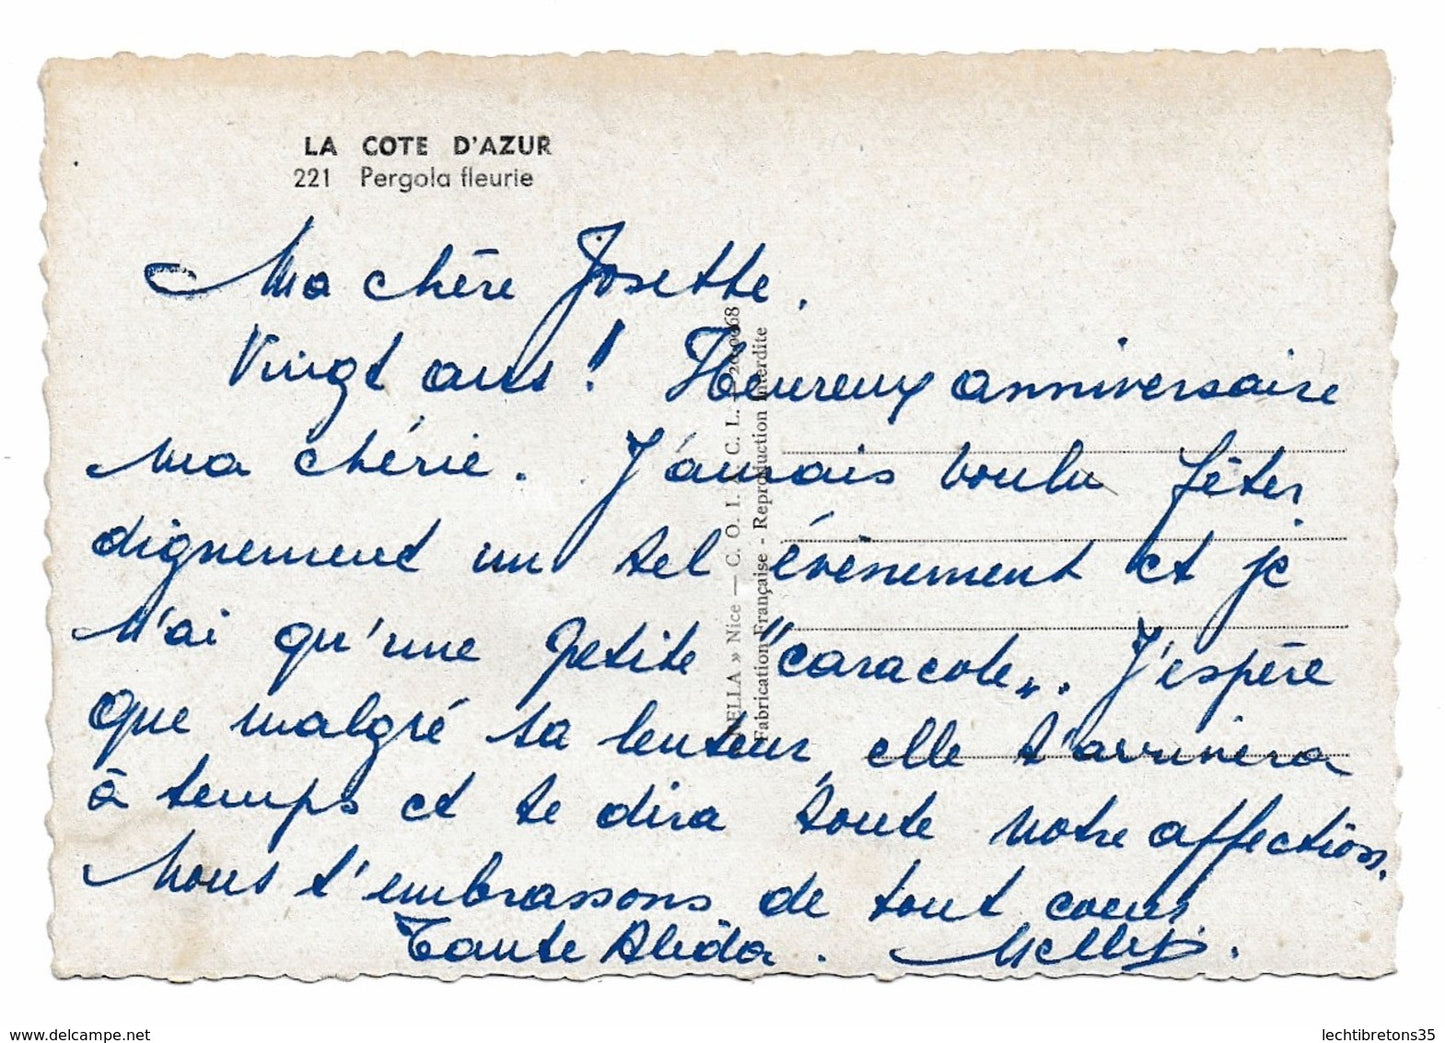 LA COTE D'AZUR
221 Pergola fleurie
Ma chère Josette.
Vingt ans ! Heureux anniversaire
ma chérie. J'aurais voulu fêter
dignement un tel évènement et je
n'ai qu'une petite "caracole". J'espère
que malgré sa lenteur, elle t'arrivera
à temps et te dira toute notre affection.
Nous t'embrassons de tout coeur
Tante Alida.
Fabrication Française - Reproduction Interdite
www.delcampe.net
lechtibretons35